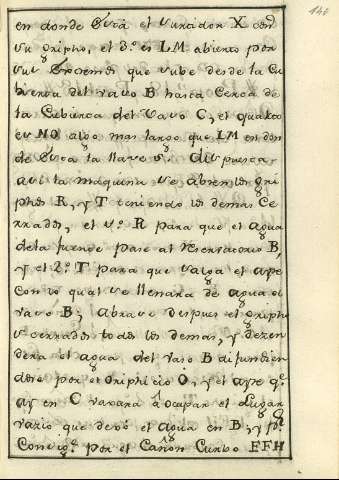 140
en donde Está el surtidor X con
su Oriphiº, el 3.º es LM abierto por
sus Extremos que sube desde la Cu
bierta del vaso B hasta Cerca de
la Cubierta del Vaso C, el quarto
es NO algo mas largo que LM en don
de Está la llave S. dispuesta
assi la maquina se abren los Ori
phios R, y T teniendo los demas Ce
rrados, el 1.º R para que el agua
de la fuente pase al reservatorio B,
y el 2.º T para que salga el ayre
Con lo qual se llenara de agua el
vaso B; Abrase despues el Oriphiº
s cerrados todos los demas, y decen
derá el agua del vaso B difundien
dose por el Oriphicio O, y el ayre q.e
ay en C vasará â ocupar el Lugar
vazio que dexó el agua en B, y p.r
Consig.te por el Cañon Curbo EFH